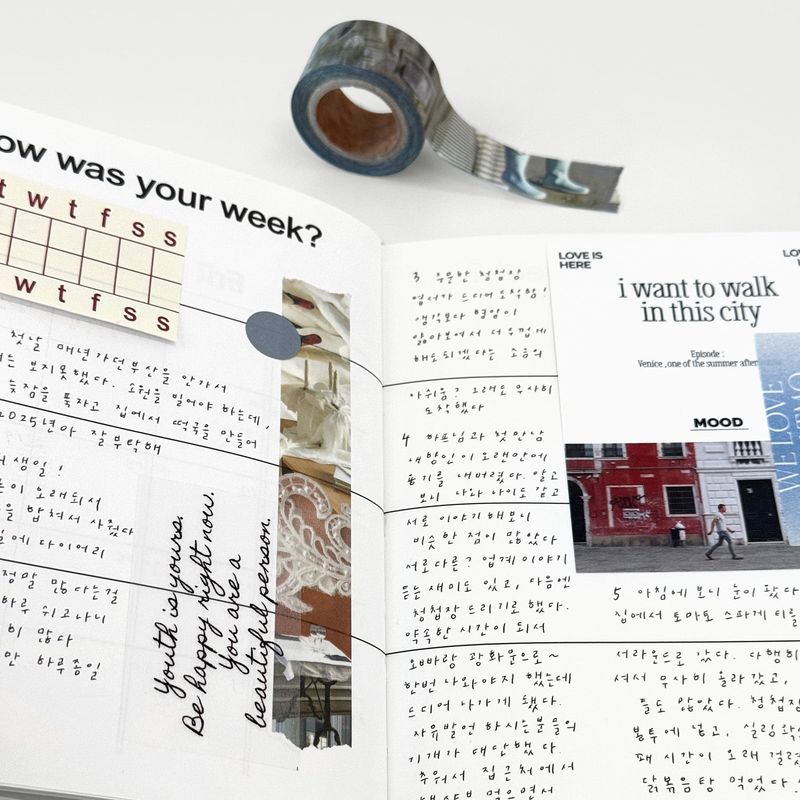 ow was your week?
t w t f s s
w t f s s
첫날 매년가던부산을 안가서
는 보지못했다. 소원을 빌어야 하는데,
늦잠을 푹자고 집에서 떡국을 만들어
2025년아 잘부탁해
생일!
이 오래되서
을 밥쳐서 사줬다
에 다이어리
정말 많다는걸
하루 쉬고나니
히 많다
만 하루종일
Youth is yours.
Be happy right now.
You are a
beautiful person.
3 주문한 청첩장
엽서가 드디어도착함!
생각보다 형압이
얇아보여서 더두껍게
해도되겠다는 소름의
아쉬움? 그래도 무사히
도착했다
4 하프님과 첫만남
내향인이 오랜만에
용기를 내버렸다. 알고
보니 나와 나이도 같고
서로 이야기해보니
비슷한 점이 많았다
서로다른? 업계 이야기
듣는 재미도 있고, 다음엔
청첩장 드리기로 했다.
약속한 시간이 되서
오빠랑 광화문으로~
한번 나와야지 했는데
드디어 나가게 됐다.
자유발언 하시는분들의
기개가 대단했다.
추워서 집근처에서
먹으면서
LOVE IS
HERE
i want to walk
in this city
Episode :
Venice ,one of the summer after
MOOD
WE LOVE
5 아침에 보니 눈이 왔다
집에서 토마토 스파게티를
서라운드로 갔다. 다행히
셔서 무사히 올라갔고,
들도 많았다. 청첩장
봉투에 넣고, 실링왁스
꽤 시간이 오래 걸렸
닭볶음탕 먹었다.